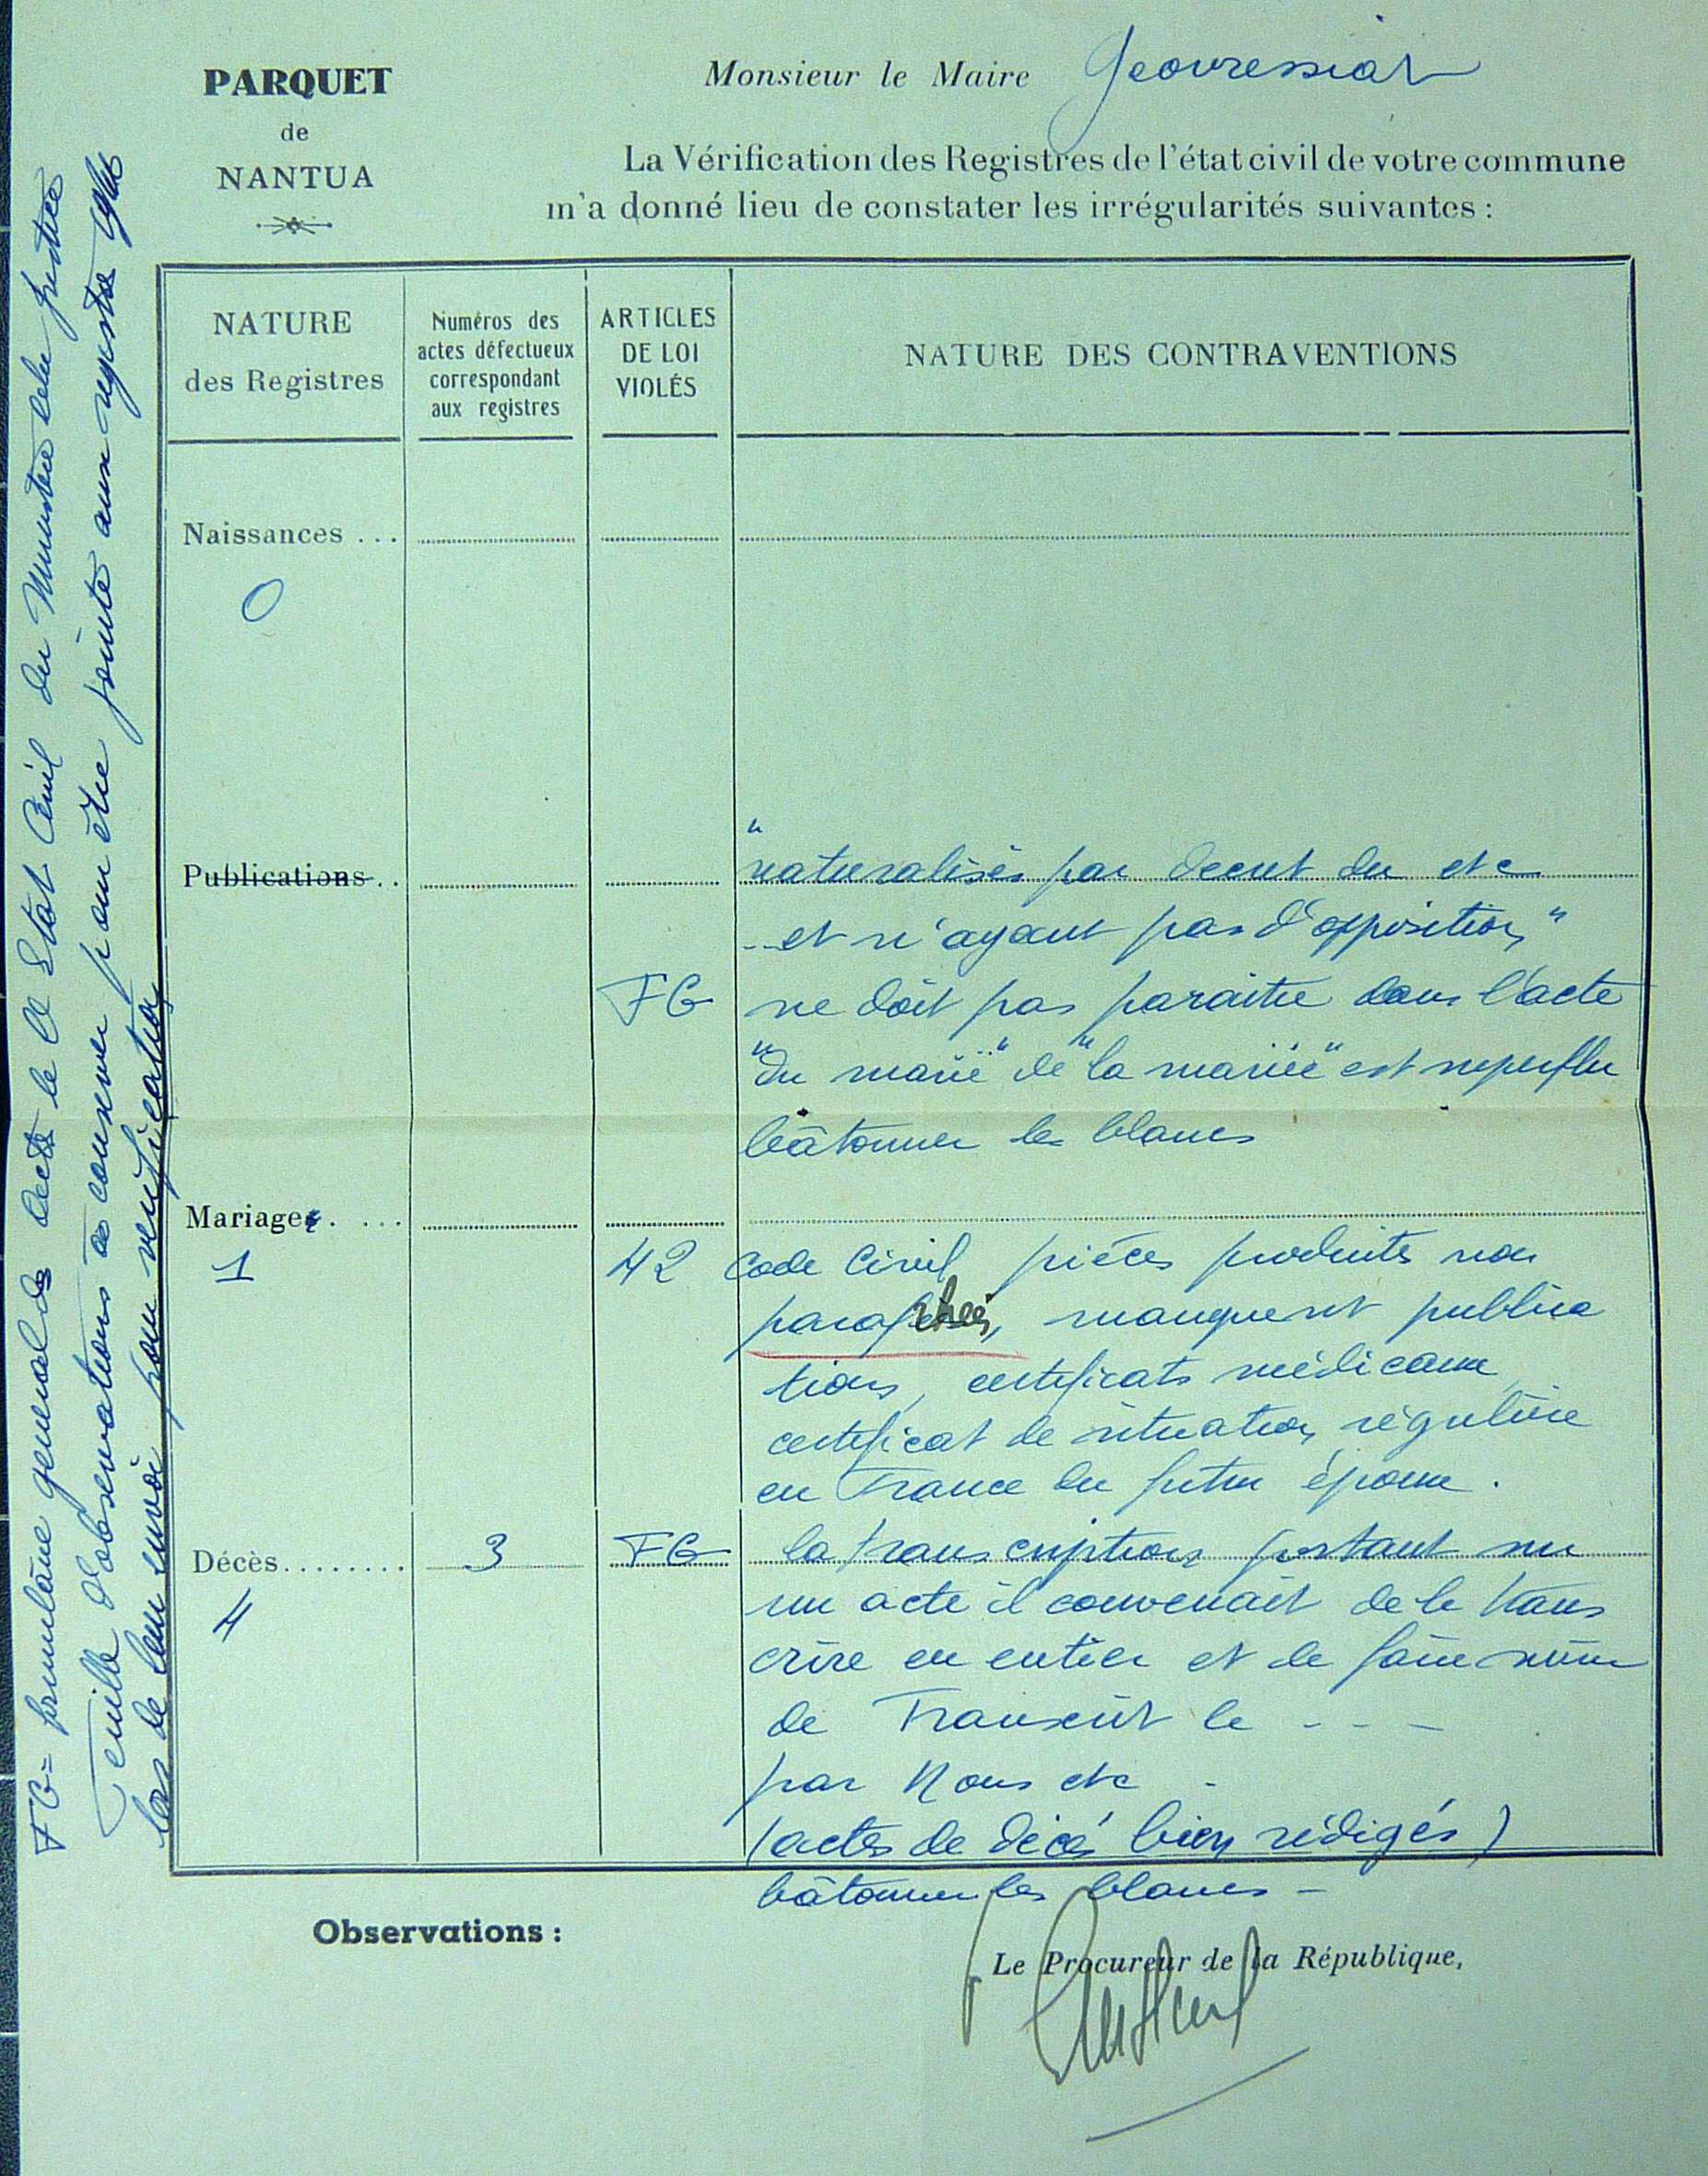 PARQUET
de
NANTUA
Monsieur le Maire Geovressiat
La Vérification des Registres de l'état civil de votre commune
m'a donné lieu de constater les irrégularités suivantes :
NATURE
des Registres
Numéros des
actes défectueux
correspondant
aux registres
ARTICLES
DE LOI
VIOLÉS
NATURE DES CONTRAVENTIONS
Naissances ...
0
Publications..
"
naturalisés par decret du etc
-- et n'ayant pas d'opposition"
FG ne doit pas paraitre dans l'acte
"du marié" de "la mariée" est superflu
bâtonner les blancs
Mariages. ...
1
42 Code Civil pièces produites non
paraphées, manquent publica
tions, certificats médicaux
certificat de situation régulière
en France du futur époux .
Décès........ 3 FG la transcription portant sur
4
un acte il convenait de le trans
crire en entier et de faire suivre
de Transcrit le - - -
par Nous etc -
(actes de décès bien rédigés)
bâtonner les blancs -
Observations :
Le Procureur de la République,
FG = formulaire general des actes de l'Etat Civil du Ministère de la Justice
Feuille d'observations à conserver pour être jointe aux registres
lors de leur envoi pour verification